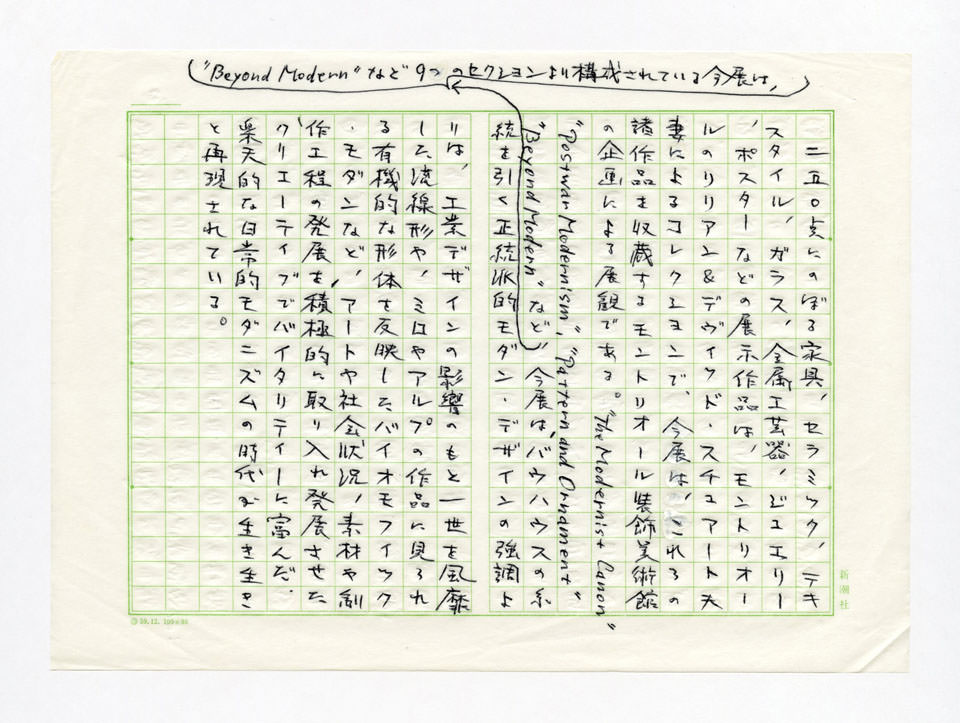 "Beyond Modern"など9つのセクションより構成されている今展は、
二五〇点にのぼる家具、セラミック、テキ
スタイル、ガラス、金属工芸器、ジュエリー
、ポスターなどの展示作品は、モントリオー
ルのリリアン&デヴィッド・スチュアート夫
妻によるコレクションで、今展は、これらの
諸作品を収蔵するモントリオール装飾美術館
の企画による展観である。"The Modernist Canon"
"Postwar Modernism," "Pattern and Ornament"
"Beyond Modern"など 今展は、バウハウスの系
統を引く正統派的モダン・デザインの強調よ
りは、工業デザインの影響のもと一世を風靡
した流線形や、ミロやアルプの作品に見られ
る有機的な形体を反映したバイオモフィック
・モダンなど、アートや社会状況、素材や制
作工程の発展を積極的に取り入れ発展させた
クリエーティブでバイタリティーに富んだ、
楽天的な日常的モダニズムの時代が生き生き
と再現されている。
新潮社
59.12. 100×80